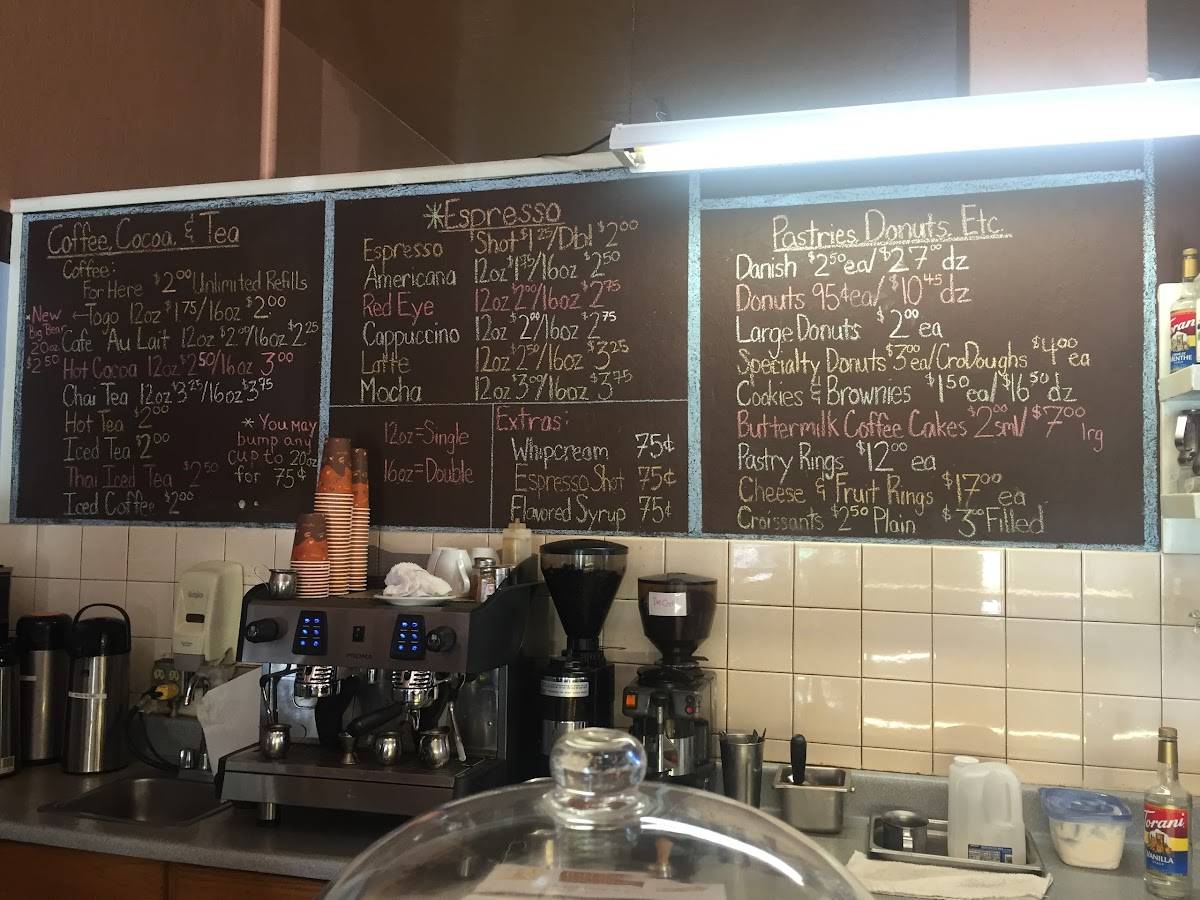 Coffee, Cocoa, & Tea
Coffee:
For Here $2.00 Unlimited Refills
*New
Big Bear
20oz
$2.50
←Togo 12oz $1.75/16oz $2.00
Cafe Au Lait 12oz $2.00/16oz $2.25
Hot Cocoa 12oz $2.50/16oz 3.00
Chai Tea 12oz $3.25/16oz $3.75
Hot Tea $2.00
Iced Tea $2.00
Thai Iced Tea $2.50
Iced Coffee $2.00
* You may
bump any
cup to 20oz
for 75¢
*Espresso
Espresso Shot $1.25/Dbl $2.00
Americana 12oz $1.75/16oz $2.50
Red Eye 12oz $2.00/16oz $2.75
Cappuccino 12oz $2.00/16oz $2.75
Latte 12oz $2.50/16oz $3.25
Mocha 12oz $3.00/16oz $3.75
12oz=Single
16oz=Double
Extras:
Whipcream 75¢
Espresso Shot 75¢
Flavored Syrup 75¢
Pastries, Donuts, Etc.
Danish $2.50 ea/$27.00 dz
Donuts 95¢ea/$10.45 dz
Large Donuts $2.00 ea
Specialty Donuts $3 ea/CroDoughs $4.00 ea
Cookies & Brownies $1.50 ea/$16.50 dz
Buttermilk Coffee Cakes $2.00 sml/$7.00 lrg
Pastry Rings $12.00 ea
Cheese & Fruit Rings $17.00 ea
Croissants $2.50 Plain $3.00 Filled
PROMA
Torani
VANILLA